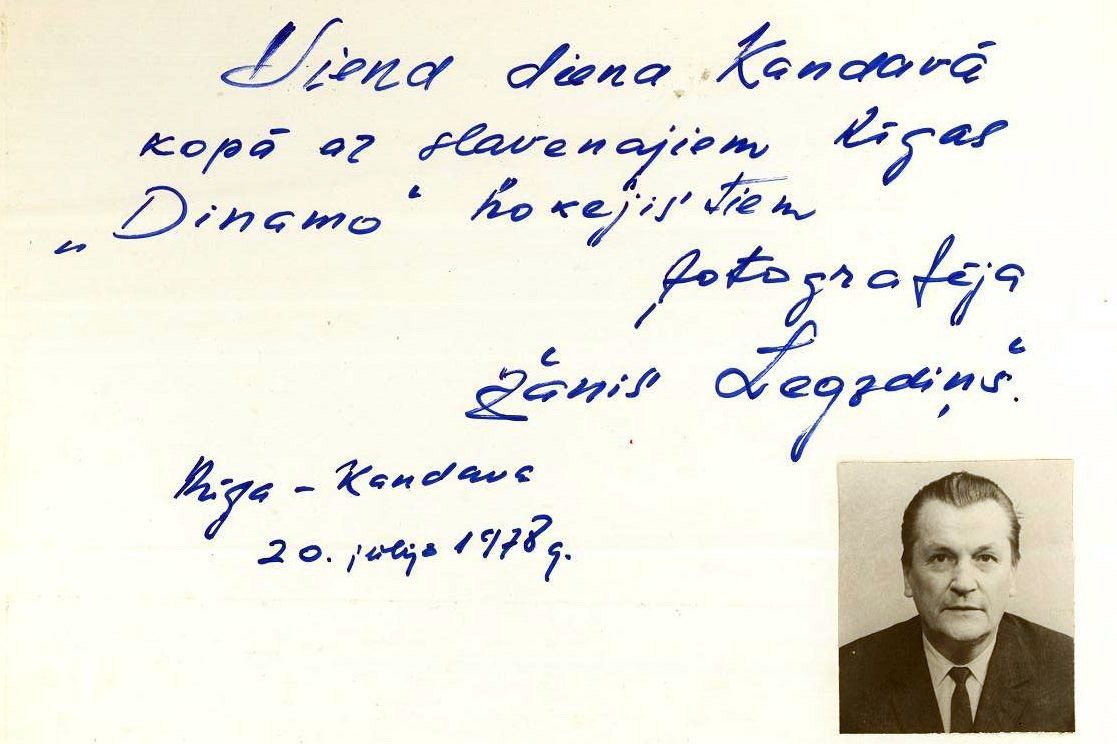 Viena diena Kandavā
kopā ar slavenajiem Rīgas
„Dinamo“ hokejistiem
fotografēja
Žānis Legzdiņš.
Rīga – Kandava
20. jūlijs 1978 g.